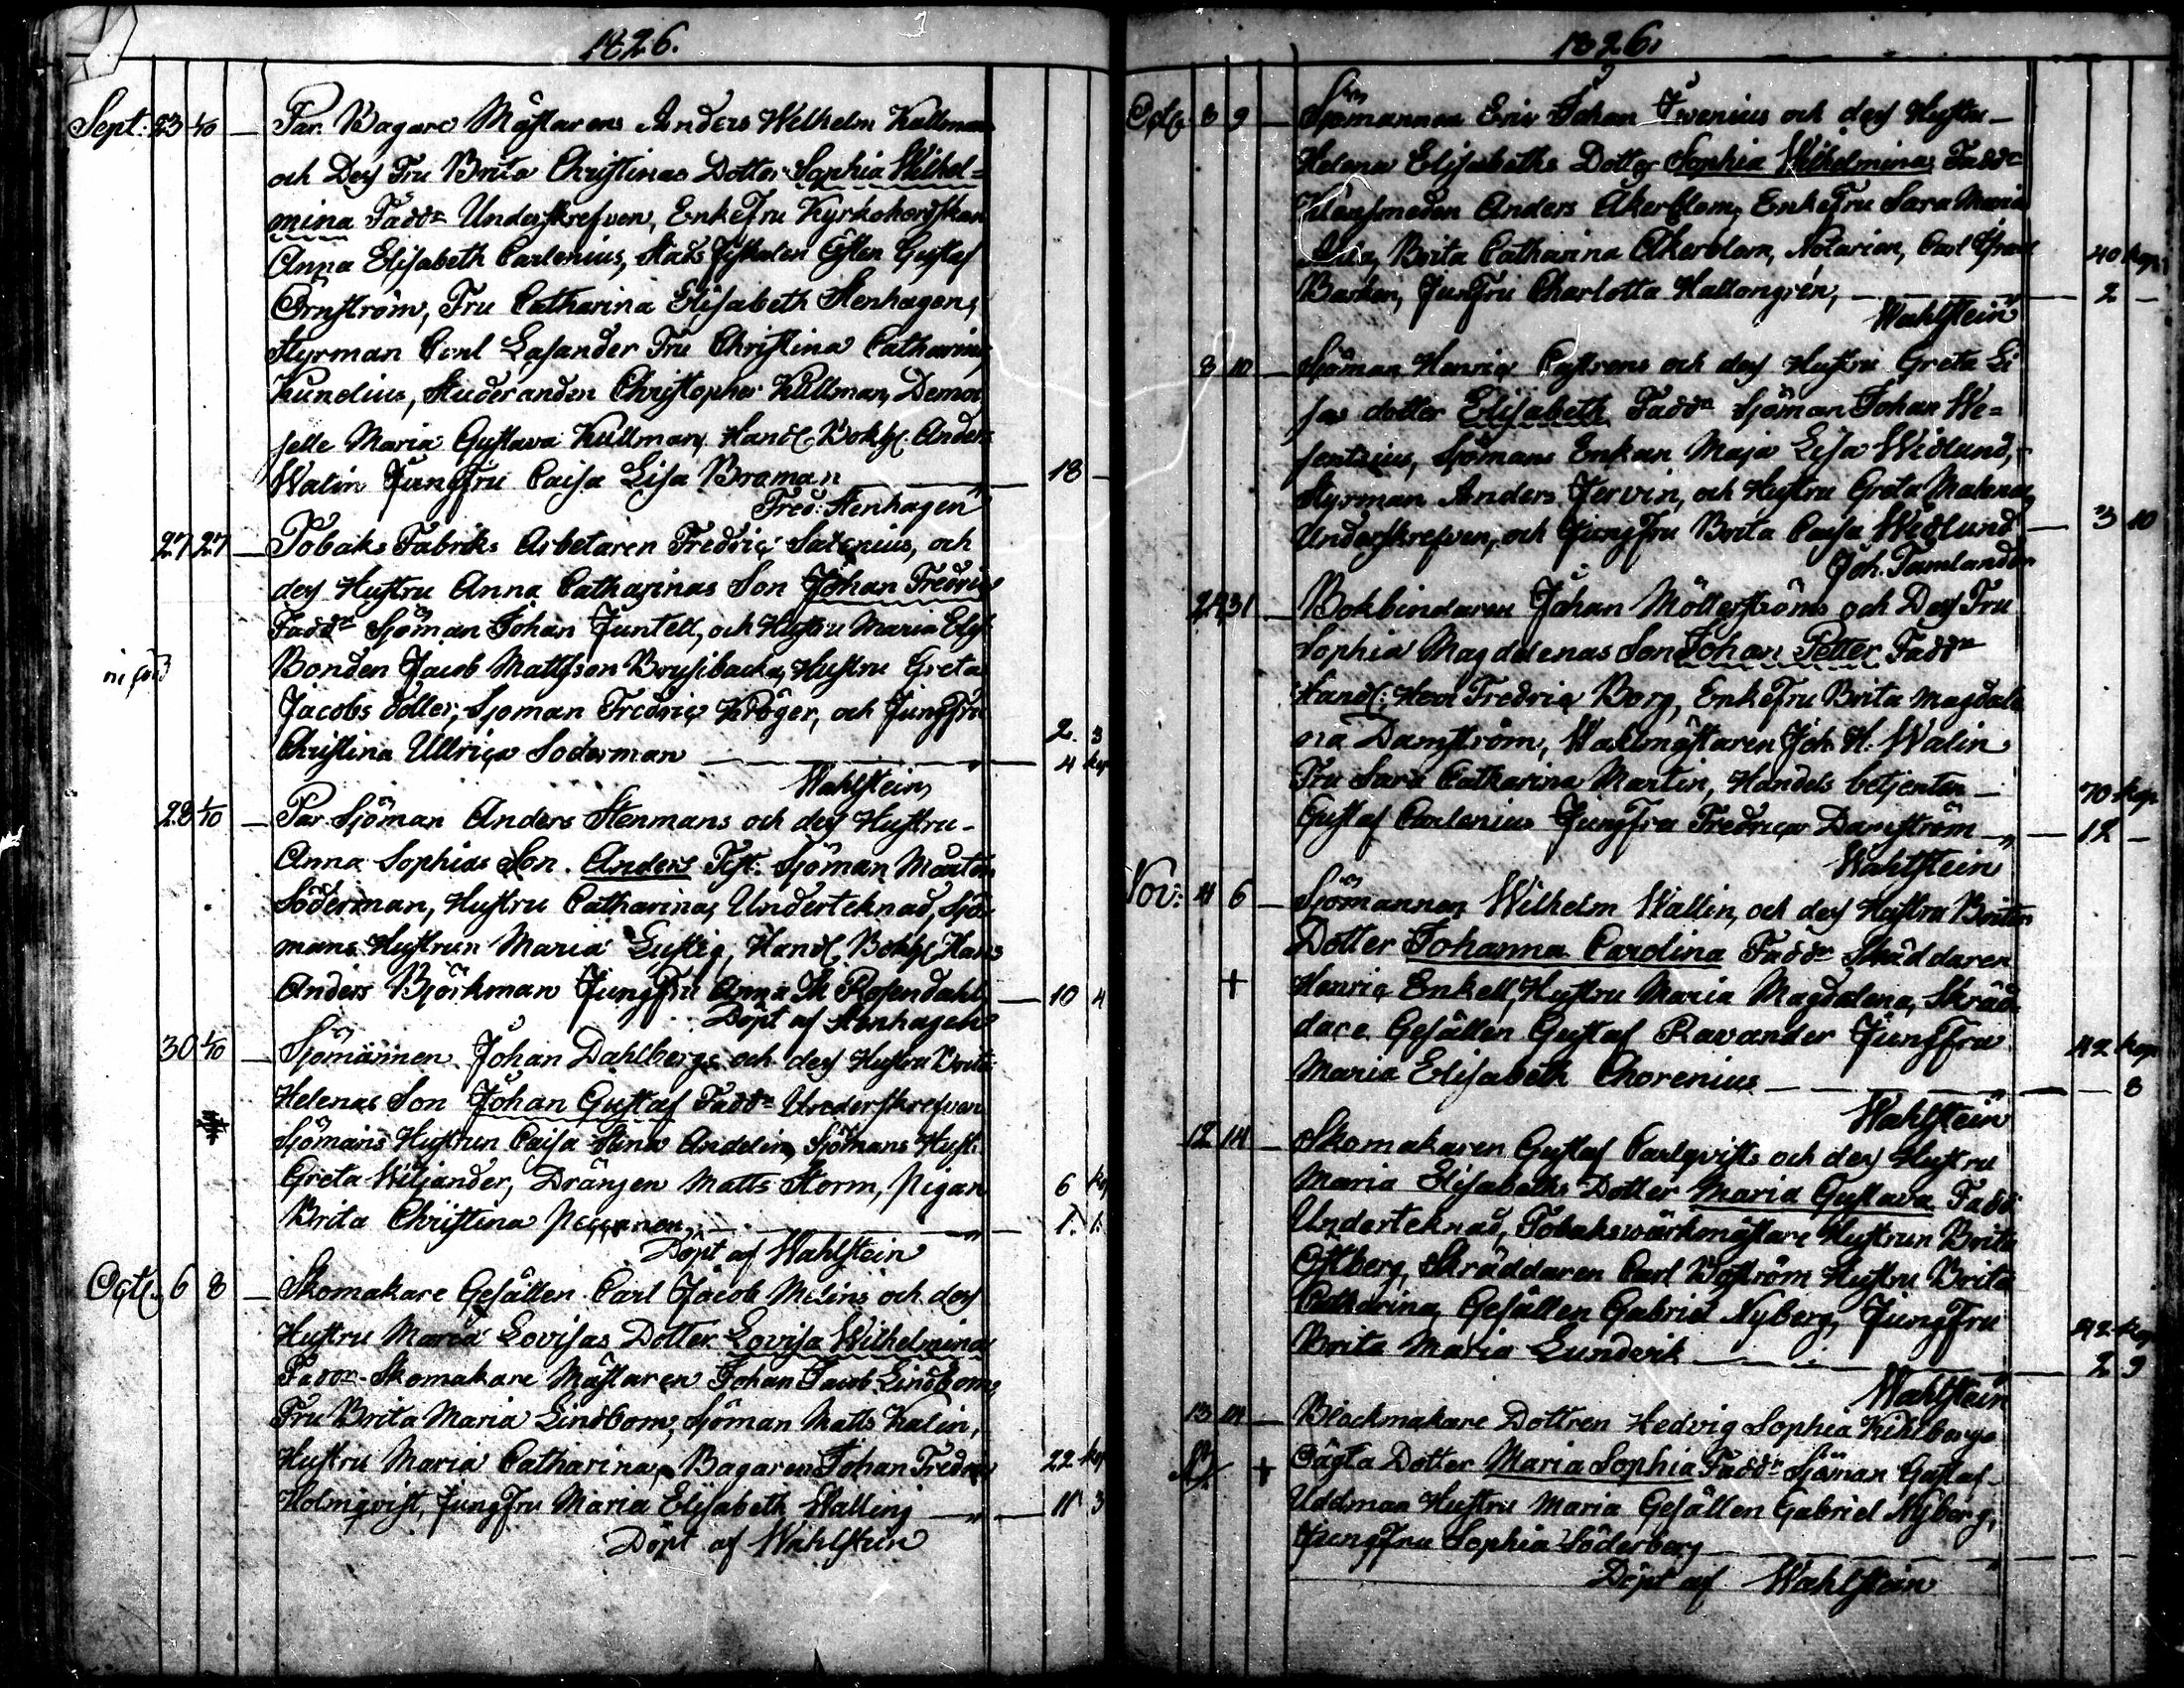 1826.
Sept: 23 1/10 — Par. Bagare Mästarens Anders Wilhelm Kullman
och Dess Fru Brita Christinas Dotter Sophia Wilhel=
mina Faddr Underskrefven, EnkeFru Kyrkoherdskan
Anna Elisabeth Carlenius, Stads Fiskalen Gustaf
Örnström, Fru Catharina Elisabeth Stenhagen,
Styrman Carl Lasander Fru Christina Catharina
Kundius, Studeranden Christopher Kullman, Demoi
selle Maria Gustava Kullman, Handl. Bokh. Anders
Walin Jungfru Caisa Lisa Broman — 18 —
Fred: Stenhagen
27 27 — Tobaks Fabriks Arbetaren Fredric Saxenius, och
dess Hustru Anna Catharinas Son Johan Fredric
Faddr Sjöman Johan Juntell, och Hustru Maria Elis.
Bonden Jacob Mattsson Brusibacka, Hustru Greta
Jacobs dotter, Sjöman Fredric Kröger, och Jungfru 2. 3
Christina Ullrica Söderman — 4 kop
Wahlstein
28 1/10 — Par Sjöman Anders Stenmans och dess Hustru
Anna Sophias Son. Anders Test: Sjöman Mårten
Söderman, Hustru Catharina, Underteknad, Sjö
mans Hustrun Maria Lustig, Handl. Bokh. Hans
Anders Björkman Jungfru Anna M Rosendahl — 10 4
Döpt af Stenhagen
30 1/10 — Sjömannen Johan Dahlbergs och dess Hustru Brita
Helenas Son Johan Gustaf Faddr Underskrefven
Sjömans Hustrun Caisa Stina Andelin, Sjömans Hust:
Greta Wiljander, Drängen Matts Storm, Pigan 6 kop
Brita Christina — 1. 1.
Döpt af Wahlstein
Octb. 6 8 — Skomakare Gesällen Carl Jacob Melins och dess
Hustru Maria Lovisas Dotter Lovisa Wilhelmina
Faddr Skomakare Mästaren Johan Jacob Lindbom,
Fru Brita Maria Lindbom, Sjöman Matts Kalin,
Hustru Maria Catharina, Bagaren Johan Fredric 22 kop
Holmqvist, Jungfru Maria Elisabeth Walling — 11 3
Döpt af Wahlstein
1826.
Octb. 8 9 — Sjömannen Eric Johan Ivenius och dess Hustru
Helena Elisabeths Dotter Sophia Wilhelmina Faddr
Klensmeden Anders Åkerblom, EnkeFru Sara Maria
Brita Catharina Åkerblom, Notarien, Carl 40 kop
Barkan, Jungfru Charlotta Hallongrén, — 2 —
Wahlstein
8 10 — Sjöman Henric Castrens och dess Hustru Greta Li
sas dotter Elisabeth Faddr Sjöman Johan We=
sentzius, Sjömans Enkan Maja Lisa Widlund,
Styrman Anders Jervin, och Hustru Greta Malena,
Underskrefven, och Jungfru Brita Caisa Wedlund — 3 10
Joh. Tamlander
29 31 — Bokbindaren Johan Möllerströms och Dess Fru
Sophia Magdalenas Son Johan Petter Faddr
Handl: Herr Fredric Borg, EnkeFru Brita Magdale
na Damström, Wacktmästaren Joh. H. Walin
Fru Sara Catharina Martin, Handels betjenten 70 kop
Gustaf Carlenius Jungfru Fredrica Damström — 12 —
Wahlstein
Nov: 4 6 — Sjömannen Wilhelm Wallin, och dess Hustru Britas
Dotter Johanna Carolina Faddr Skräddaren
+ Henric Enkell, Hustru Maria Magdalena, Skräd
dare Gesällen Gustaf Ravander Jungfru 42 kop
Maria Elisabeth Chorenius — 8
Wahlstein
12 14 — Skomakaren Gustaf Carlqvists och dess Hustru
Maria Elisabeths Dotter Maria Gustava Fadd
Underteknad, Tobakswärkmästare Hustrun Brita
Östberg, Skräddaren Carl Boström Hustru Brita
Catharina, Gesällen Gabriel Nyberg, Jungfru 42 kop
Brita Maria Lundvik — 2 9
Wahlstein
13 14 — Blackmakare Dottren Hedvig Sophia Kihlbergs
+ Oägta Dotter Maria Sophia Faddr Sjöman Gustaf
Uddman Hustru Maria Gesällen Gabriel Nyberg,
Jungfru Sophia Söderberg —
Döpt af Wahlstein